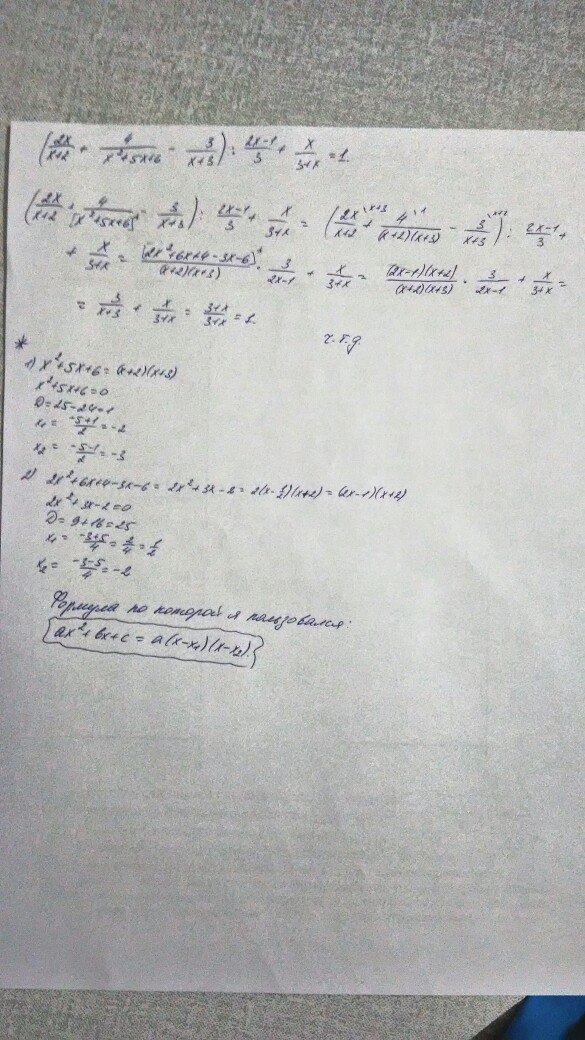 (2x/(x+2) + 4/(x²+5x+6) - 3/(x+3)) : (2x-1)/3 + x/(3+x) = 1.
(2x/(x+2) + 4/[x²+5x+6]* - 3/(x+3)) : (2x-1)/3 + x/(3+x) = (2x\x+3/(x+2) + 4\1/((x+2)(x+3)) - 3\x+2/(x+3)) : (2x-1)/3 +
+ x/(3+x) = [2x²+6x+4-3x-6]*/((x+2)(x+3)) · 3/(2x-1) + x/(3+x) = (2x-1)(x+2)/((x+2)(x+3)) · 3/(2x-1) + x/(3+x) =
= 3/(x+3) + x/(3+x) = (3+x)/(3+x) = 1.
ч.т.д.
*
1) x²+5x+6 = (x+2)(x+3)
x²+5x+6=0
D=25-24=1
x₁ = (-5+1)/2 = -2
x₂ = (-5-1)/2 = -3
2) 2x²+6x+4-3x-6 = 2x²+3x-2 = 2(x-1/2)(x+2) = (2x-1)(x+2)
2x²+3x-2=0
D=9+16=25
x₁ = (-3+5)/4 = 2/4 = 1/2
x₂ = (-3-5)/4 = -2
Формула по которой я пользовался:
ax²+bx+c = a(x-x₁)(x-x₂).